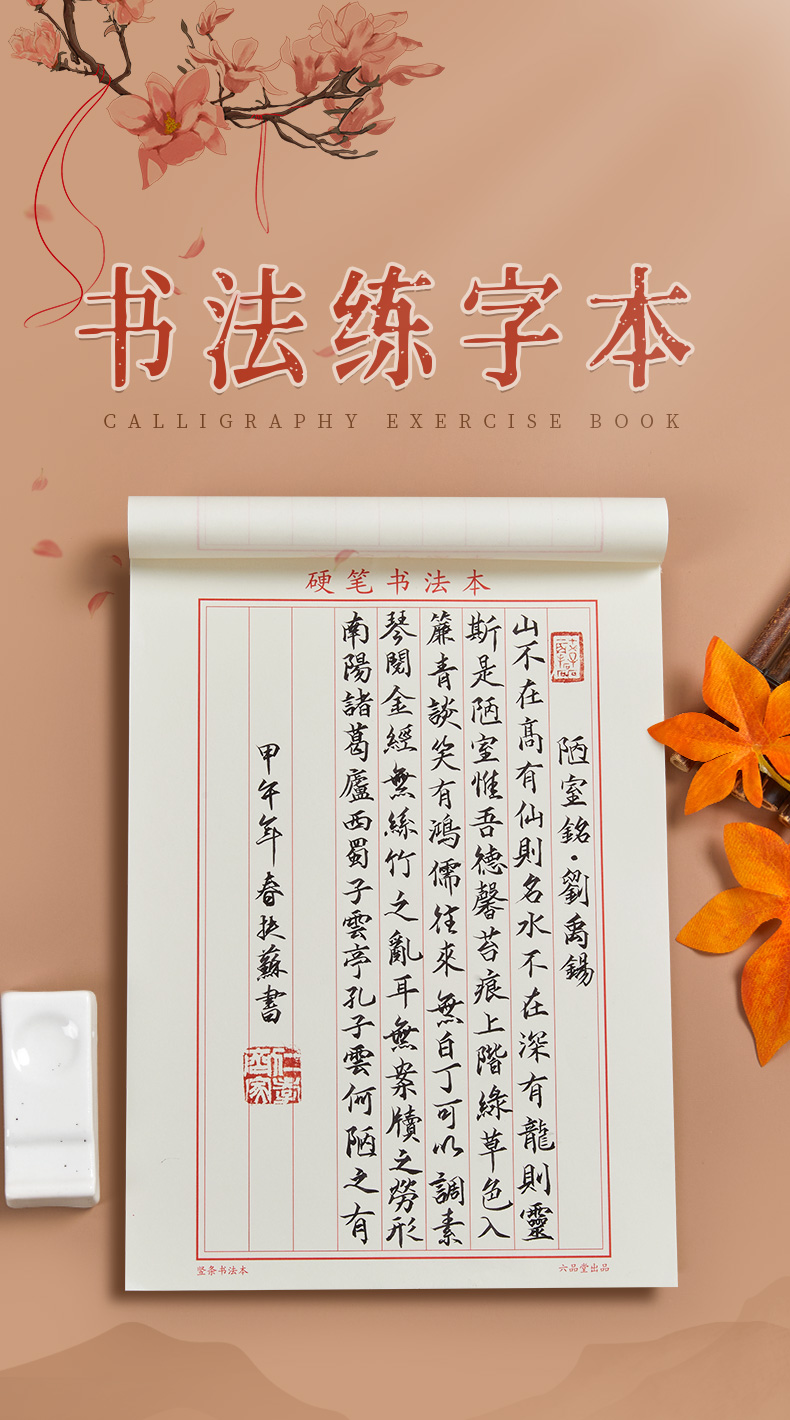 书法练字本
CALLIGRAPHY EXERCISE BOOK
硬笔书法本
陋室銘·劉禹錫
山不在髙有仙則名水不在深有龍則靈
斯是陋室惟吾德馨苔痕上階綠草色入
簾青談笑有鴻儒往來無白丁可以調素
琴閱金經無絲竹之亂耳無案牘之勞形
南陽諸葛廬西蜀子雲亭孔子雲何陋之有
甲午年春扶蘇書
竖条书法本
六品堂出品